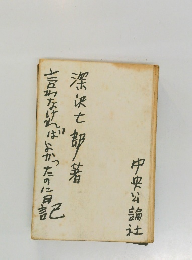 中央公論社
深沢七郎著
言わなければよかったのに日記